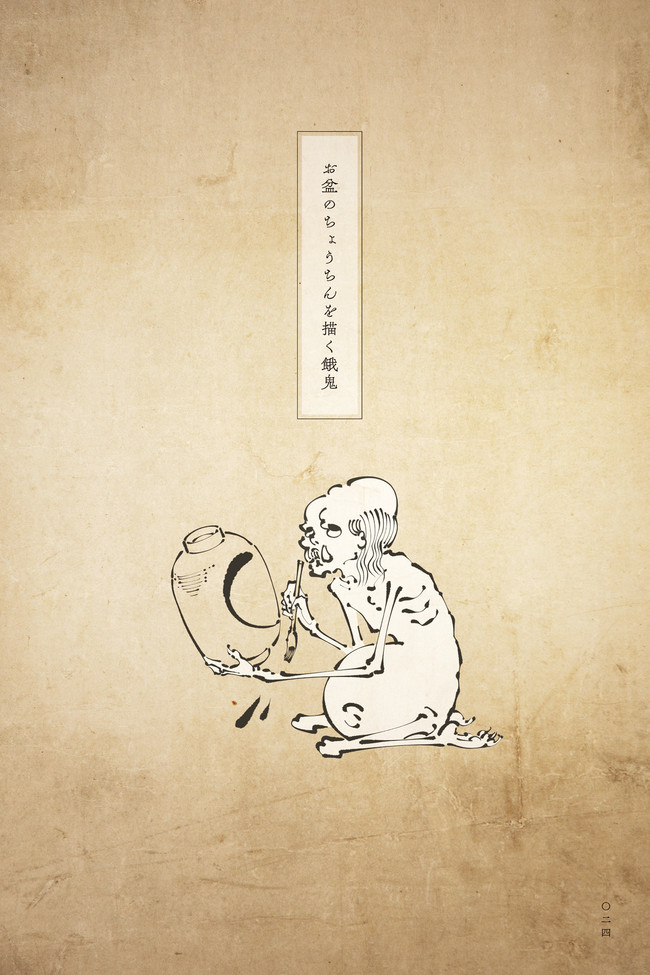 お盆のちょうちんを描く餓鬼
〇二四